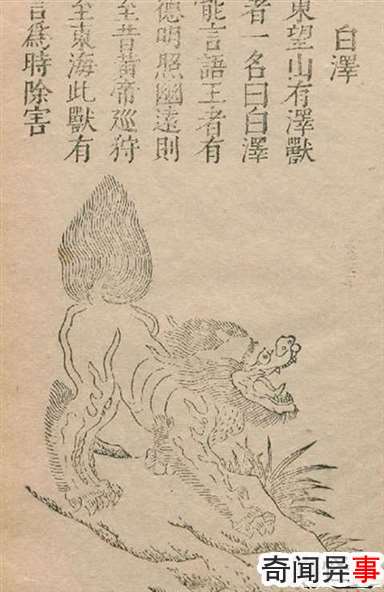 白澤
東望山有澤獸
者一名曰白澤
能言語王者有
德明照幽遠則
至昔黃帝巡狩
至東海此獸有
言爲時除害
奇闻异事